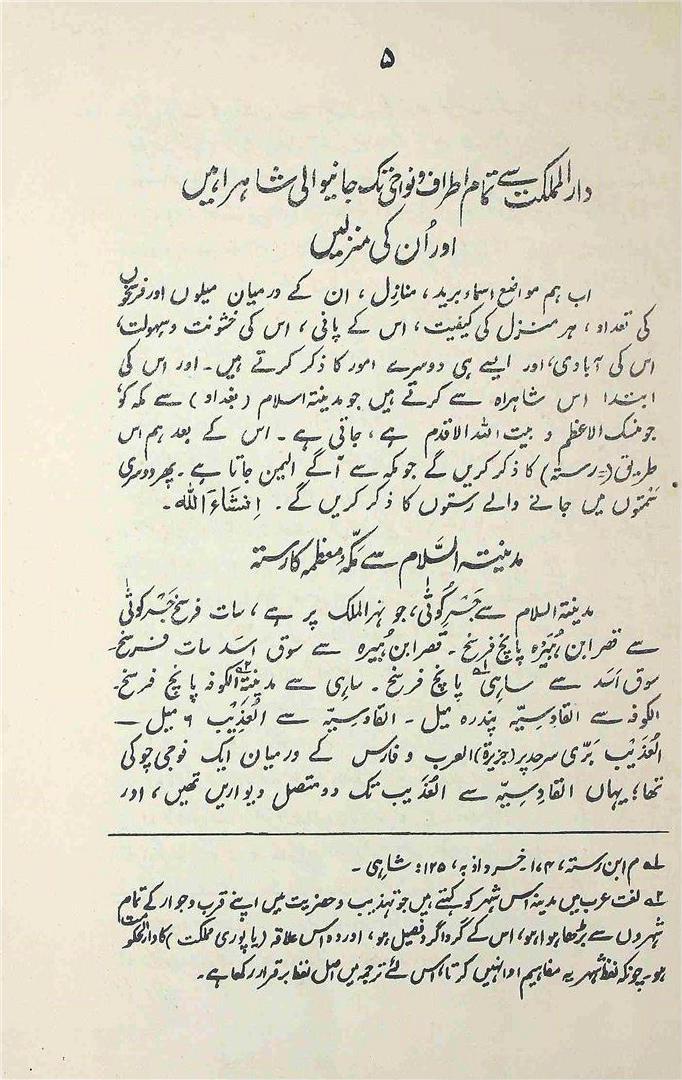 ۵
دارالمملکت سے تمام اطراف و نواحی تک جانیوالی شاہراہیں
اور اُن کی منزلیں
اب ہم مواضع اسماء برید، منازل، ان کے درمیان میلوں اور فرسخوں
کی تعداد، ہر منزل کی کیفیت، اس کے پانی، اس کی خشونت و سہولت،
اس کی آبادی، اور ایسے ہی دوسرے امور کا ذکر کرتے ہیں۔ اور اس کی
ابتدا اس شاہراہ سے کرتے ہیں جو مدینۃ اسلام (بغداد) سے مکہ کو،
جو منسک الاعظم و بیت اللہ الاقدم ہے، جاتی ہے۔ اس کے بعد ہم اس
طریق (= رستہ) کا ذکر کریں گے جو مکہ سے آگے الیمن جاتا ہے۔ پھر دوسری
سمتوں میں جانے والے رستوں کا ذکر کریں گے۔ اِنشَاءَ اللہ۔
مدینتہ السَّلام سے مکّۂ معظمہ کا رستہ
مدینۃ السلام سے جَسْرِ کُوثٰی، جو نہر الملک پر ہے، سات فرسخ جَسْرِ کُوثٰی
سے قصر ابن ہُبَیْرَہ پانچ فرسخ۔ قصر ابن ہُبیرہ سے سوق اسَد سات فرسخ۔
سوق اَسَد سے ساہی۱؎ پانچ فرسخ۔ ساہی سے مدینۃ۲؎ الکوفہ پانچ فرسخ۔
الکوفہ سے القادسیّہ پندرہ میل۔ القادسِیّہ سے العُذَیْب ۶ میل —
العُذَیْب بَرّی سرحد پر (جزیرۃ) العرب و فارس کے درمیان ایک فوجی چوکی
تھا؛ یہاں القادِسیّہ سے العُذَیب تک دو متصل دیواریں تھیں، اور
۱؎ م ابن رستہ، ۱۷۴۔ خرداذبہ، ۱۲۵: شاہی۔
۲؎ لغت عرب میں مدینہ اس شہر کو کہتے ہیں جو تہذیب و حضریت میں اپنے قرب و جوار کے تمام
شہروں سے بڑھا ہوا ہو، اس کے گرداگرد فصیل ہو، اور وہ اس علاقہ (یا پوری مملکت) کا دارالحکومت
ہو۔ چونکہ لفظ شہر یہ مفاہیم ادا نہیں کرتا، اس لئے ترجمہ میں اصل لفظ برقرار رکھا ہے۔